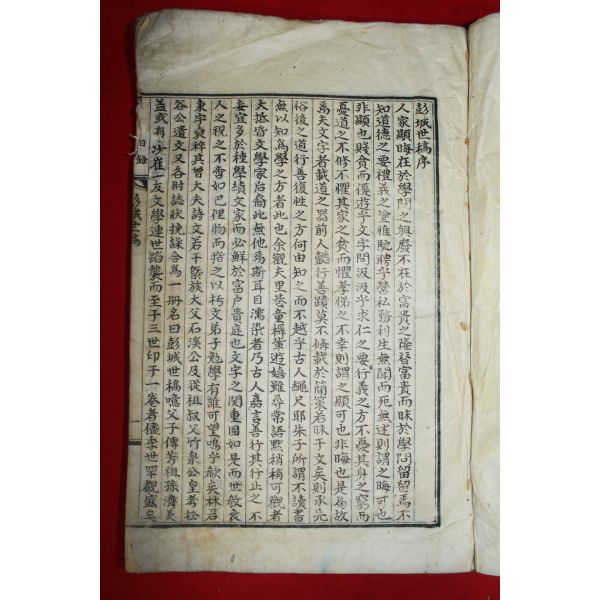 彭城世稿序
人家顯晦在於學問之興廢不在於富貴之隆替富貴而昧於學問留留焉不
知道德之要禮義之塗惟馳騁乎營私務利生無聞而死無述則謂之晦可也
非顯也賤貧而優遊乎文字間汲汲乎求仁之要行義之方不憂其身之窮而
憂道之不修不懼其家之貧而懼孝悌之不幸則謂之顯可也非晦也是為故
焉夫文字者載道之器前人懿行善蹟莫不備載於簡策若昧于文矣則承先
裕後之道行善復性之方何由知之而不越乎古人繩尺耶朱子所謂不讀書
無以知為學之方者此也余觀夫里巷童穉輩遊嬉雖尋常語默稍稍可觀者
大抵皆文學家后裔此無他焉斯耳目濡染者乃古人嘉言善行其行止之不
妄宜多於種學績文家而必鮮於富戶貴庭也文字之関重固如是而世敎衰
人之視之不啻如已俚物而指之以朽文弟子勉學有誰可望嗚乎欷矣林君
東字奭粹其曾大夫詩文若干槩族大父石溪公及從祖叔父竹泉公皇考松
谷公遺文又各附誌狀挽誄合為一冊名曰彭城世稿噫父子傳芳祖孫濟美
盖或有之崔一友文學連世蹈襲而至于三世印于一卷者儘季世罕觀盛矣
彭城世稿
一